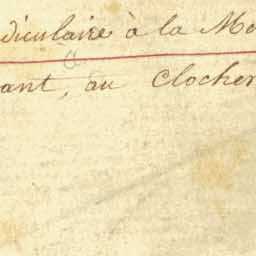 diculaire à la Mo
ant, au Clocher